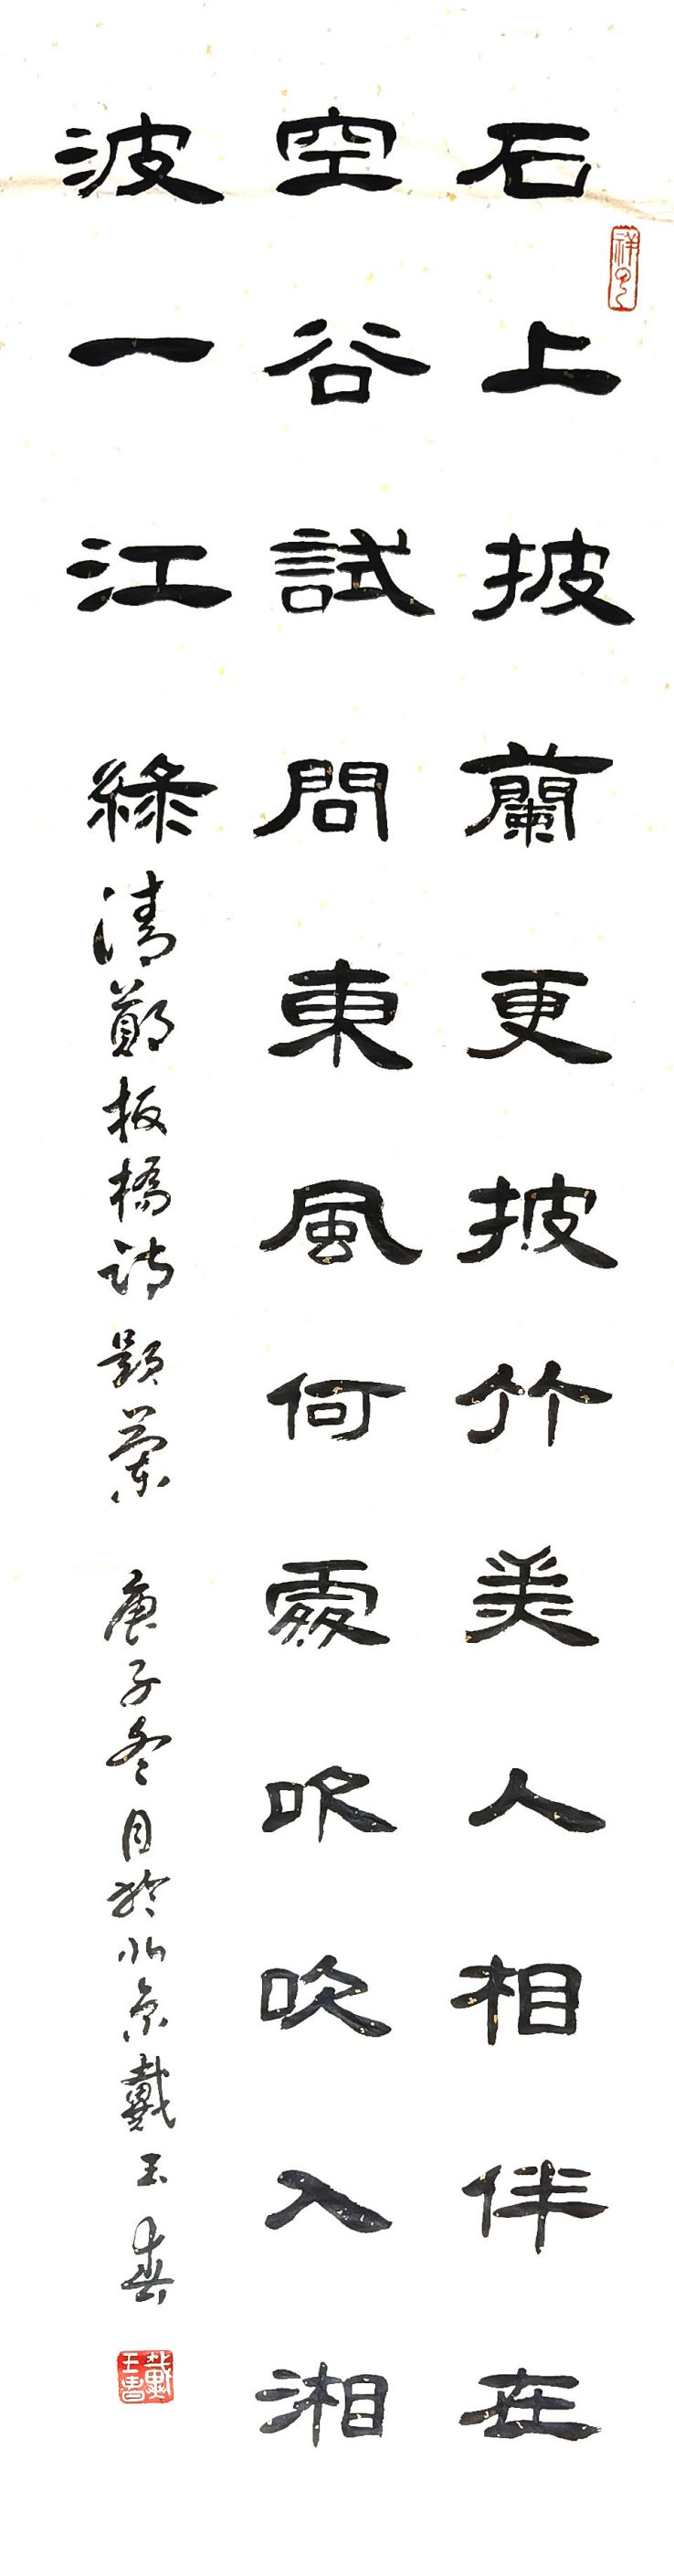 石上披蘭更披竹美人相伴在
空谷試問東風何處吹吹入湘
波一江綠
清鄭板橋詩題蘭 庚子冬月於北京戴玉春